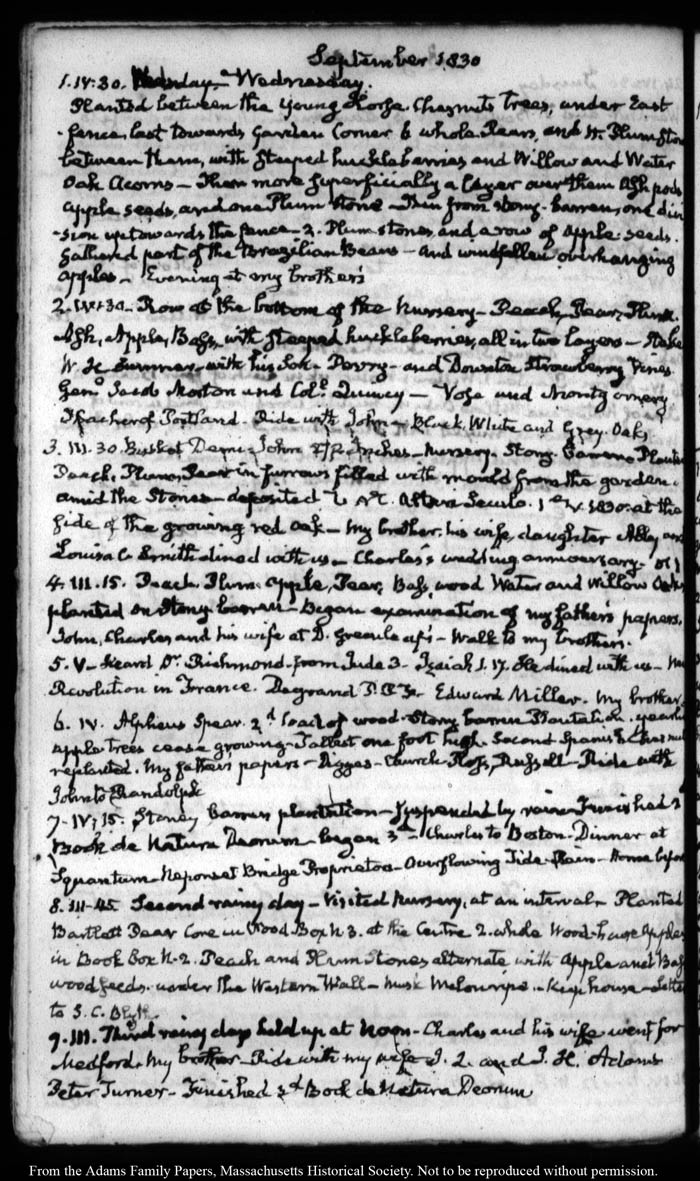 September 1830
1. IV:30. Wednesday.
Planted between the young Horse Chesnuts trees, under East
fence, last towards Garden Corner 6 whole Pears, and Plum Stone
between them, with steeped huckleberries and Willow and Water
Oak Acorns — Then more superficially a layer over them Ash pods
apple seeds, and one Plum stone —
up towards the fence — 2. Plum stones, and a row of apple seeds.
Gathered part of the Brazilian Beans — and windfallen overhanging
apples — Evening at my brother's
2. IV:30 — Row at the bottom of the Nursery — Peach, Pear, Plum.
Ash, Apple, Bass, with steeped huckleberries, all in two layers —
W H Sumner with his — Perry — and Downton Strawberry Vines
Genl. Jacob Morton and Col. Quincy — Vose and Montgomery
of Portland — Ride with John — Black, White and Grey Oak,
3. III.30 John Inches — Nursery. Stony Barren Planted
Peach, Plum, Pear in furrows filled with mould from the garden.
amid the Stones — deposited at the
side of the growing red oak — My brother, his wife, daughter Abby and
Louisa C. Smith dined with us — Charles's wedding anniversary.
4. III.15. Peach Plum. Apple, Pear, Bass, wood Water and Willow Oaks
planted on Stony barren — Began examination of my father's papers.
John, Charles and his wife at D. Greenleaf's — Walk to my brother's.
5. V — Heard Dr. Richmond — from Jude 3 — Isaiah 1.17. He dined with us —
Revolution in France. Degrand P.P.F. Edward Miller. My brother
6. IV. Alpheus Spear. 2d. load of wood. Stony barren Plantation. yearling
apple trees cease growing — Tallest one foot high. Second Spanish Chesnut
replanted. My father's papers — Church — Ross, Russell — Ride with
John to Randolph
7. IV:15. Stoney barren plantation — suspended by rain Finished 2
Book de Natura Deorum — began 3d — Charles to Boston — Dinner at
Squantum — Neponset Bridge Proprietors — Overflowing Tide — Rain — Home before
8. III-45 Second rainy day — Visited Nursery, at an interval — Planted
Bartlett Pear Core in Wood Box N 3. at the Centre 2. whole Apples
in Book Box N. 2. Peach and Plum Stones alternate with Apple and Bass
wood seeds. under the Western Wall — Musk Melon ripe — Keep house —
to S. C.
9. III. Third rainy day held up at Noon — Charles and his wife went for
Medford. My brother — Ride with my wife J. Q. and J. H. Adams
Peter Turner — Finished 3d Book de Natura Deorum
From the Adams Family Papers, Massachusetts Historical Society. Not to be reproduced without permission.